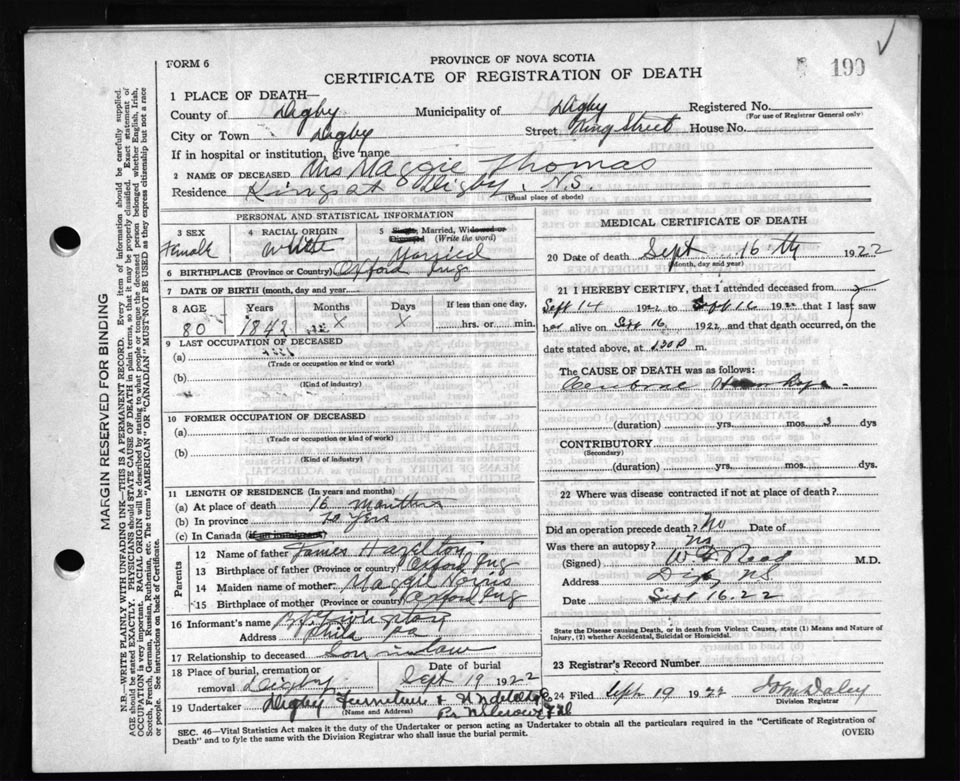 FORM 6
PROVINCE OF NOVA SCOTIA
CERTIFICATE OF REGISTRATION OF DEATH
190
MARGIN RESERVED FOR BINDING
N.B.—WRITE PLAINLY WITH UNFADING INK—THIS IS A PERMANENT RECORD. Every item of information should be carefully supplied.
AGE should be stated EXACTLY. PHYSICIANS should STATE CAUSE OF DEATH in plain terms, so that it may be properly classified. Exact statement of
OCCUPATION is very important. RACIAL ORIGIN will be described by stating to what people or tongue the deceased person belonged whether English, Irish,
Scotch, French, German, Russian, Ruthenian, etc. The terms "AMERICAN" OR "CANADIAN" MUST NOT BE USED as they express citizenship but not a race
or people. See instructions on back of Certificate.
1 PLACE OF DEATH—
County of Digby Municipality of Digby Registered No.
(For use of Registrar General only)
City or Town Digby Street King Street House No.
If in hospital or institution, give name
2 NAME OF DECEASED Mrs Maggie Thomas
Residence King st Digby, N.S.
(Usual place of abode)
PERSONAL AND STATISTICAL INFORMATION
3 SEX Female
4 RACIAL ORIGIN White
5 Single, Married, Widowed or Divorced (Write the word) Married
6 BIRTHPLACE (Province or Country) Oxford Eng
7 DATE OF BIRTH (month, day and year)
8 AGE Years Months Days If less than one day,
80 1842 X X hrs. or min.
9 LAST OCCUPATION OF DECEASED
(a)
(Trade or occupation or kind of work)
(b)
(Kind of industry)
10 FORMER OCCUPATION OF DECEASED
(a)
(Trade or occupation or kind of work)
(b)
(Kind of industry)
11 LENGTH OF RESIDENCE (In years and months)
(a) At place of death 16 Months
(b) In province 70 Yrs
(c) In Canada (if an immigrant)
Parents
12 Name of father James Hazelton
13 Birthplace of father (Province or country) Oxford Eng
14 Maiden name of mother Maggie Norris
15 Birthplace of mother (Province or country) Oxford Eng
16 Informant's name
Address Phila Pa
17 Relationship to deceased Son in law
18 Place of burial, cremation or removal Digby Date of burial Sept 19 1922
19 Undertaker Digby Furniture &
(Name and Address)
MEDICAL CERTIFICATE OF DEATH
20 Date of death Sept 16 th 1922
(Month, day and year)
21 I HEREBY CERTIFY, that I attended deceased from
Sept 14 1922 to Sept 16 1922 that I last saw
her alive on Sept 16 1922 and that death occurred, on
date stated above, at 1.30 P m.
The CAUSE OF DEATH was as follows:
(duration) yrs. mos. 3 dys
CONTRIBUTORY
(Secondary)
(duration) yrs. mos. dys.
22 Where was disease contracted if not at place of death?
Did an operation precede death? No Date of
Was there an autopsy? No
(Signed) M.D.
Address Digby NS
Date Sept 16.22
State the Disease causing Death, or in death from Violent Causes, state (1) Means and Nature of
Injury, (2) whether Accidental, Suicidal or Homicidal.
23 Registrar's Record Number
24 Filed Sept 19 1922
Division Registrar
SEC. 46—Vital Statistics Act makes it the duty of the Undertaker or person acting as Undertaker to obtain all the particulars required in the "Certificate of Registration of
Death" and to fyle the same with the Division Registrar who shall issue the burial permit.
(OVER)